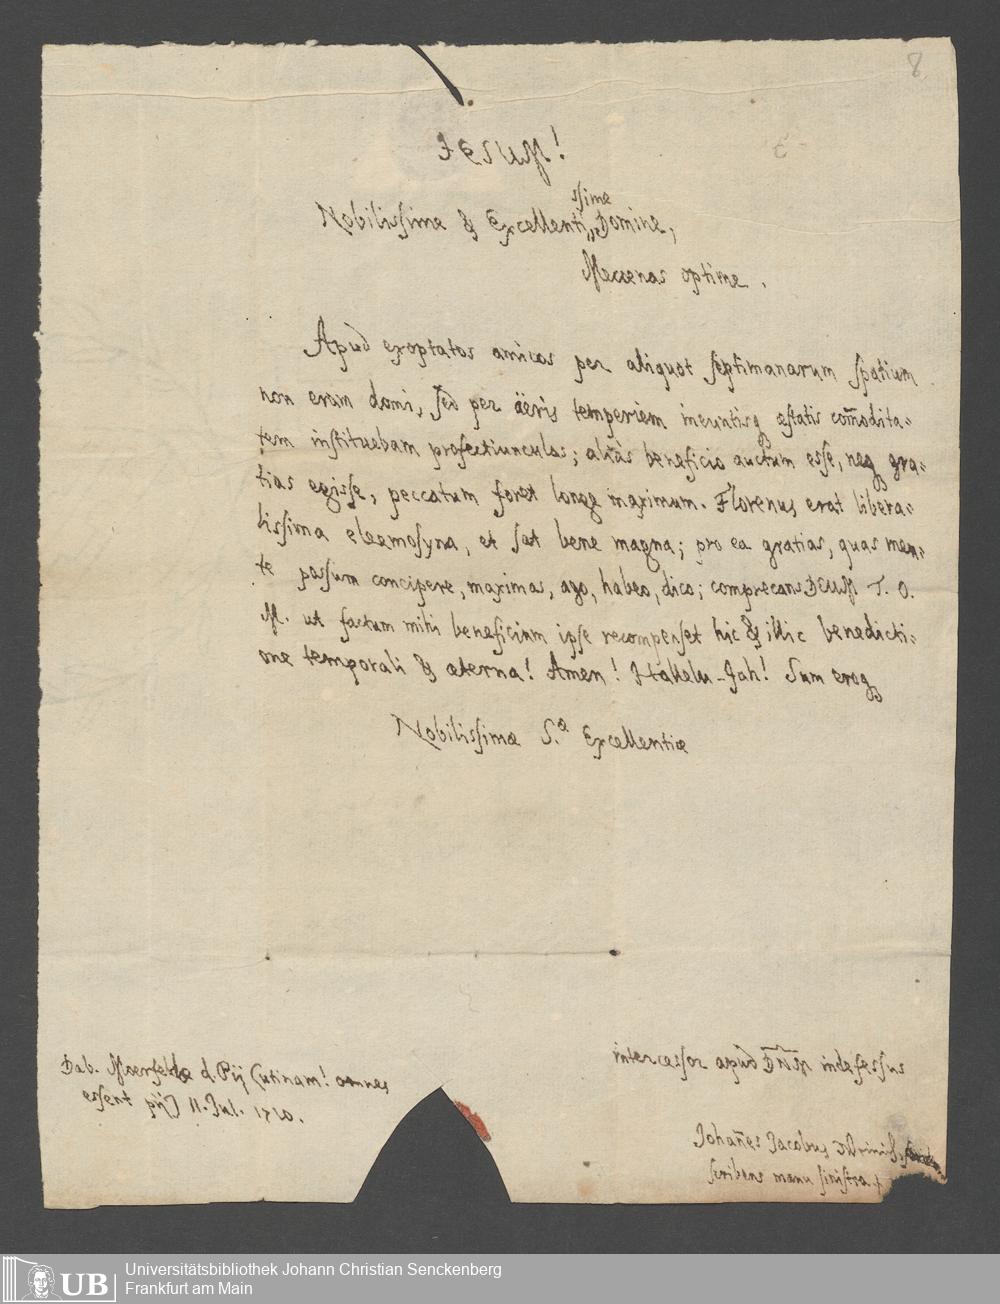 8
JESUM!
ssime
Nobilissime & Excellenti,, Domine,
Mecœnas optime.
Apud exoptatos amicos per aliquot septimanarum spatium
non eram domi, sed per aëris temperiem ineuntisq æstatis com̄odita=
tem instituebam profectiunculas; aliàs beneficio auctum esse, neq gra=
tias egisse, peccatum foret longe maximum. Florenus erat libera=
lissima eleemosyna, et sat bene magna; pro ea gratias, quas men=
te possum concipere, maximas, ago, habeo, dico; comprecans DEUM T. O.
M. ut factum mihi beneficium ipse recompenset hic & illic benedicti=
one temporali & æterna! Amen! Hallelu-Jah! Sum eroq
Nobilissimæ S.æ Excellentiæ
intercessor apud indefessus
Dab. d. Pij (utinam! omnes
essent pij) 11. Jul. 1710.
Johan̄es Jacobus
scribens manu sinistra
UB
Universitätsbibliothek Johann Christian Senckenberg
Frankfurt am Main